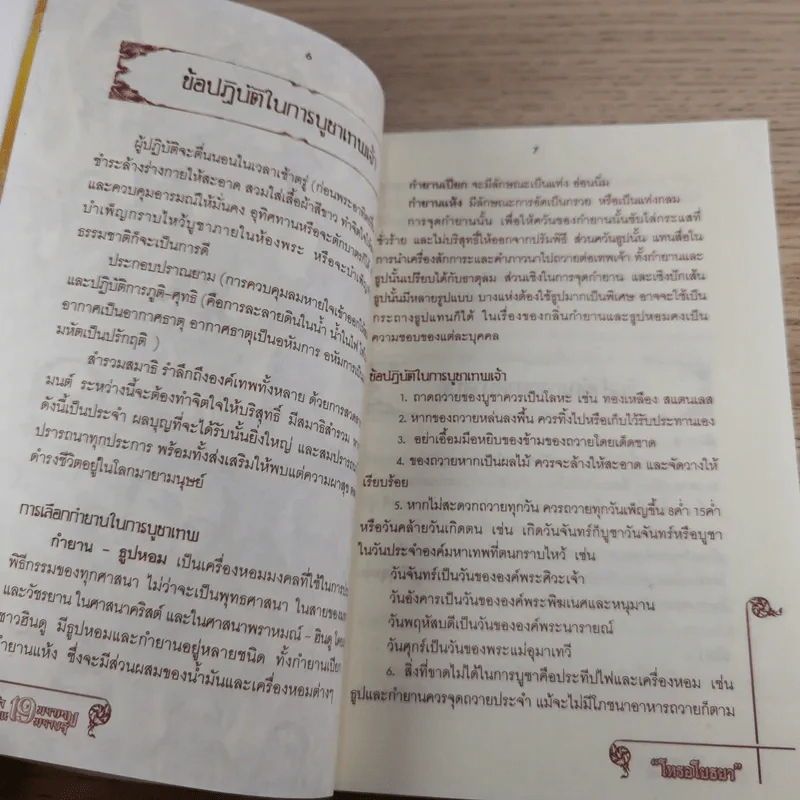 6
ข้อปฏิบัติในการบูชาเทพเจ้า
ผู้ปฏิบัติจะตื่นนอนในเวลาเช้าตรู่ (ก่อนพระอาทิตย์
ชำระล้างร่างกายให้สะอาด สวมใส่เสื้อผ้าสีขาว ทำจิตใจ
และควบคุมอารมณ์ให้มั่นคง อุทิศทานหรือจะตักบาตร
บำเพ็ญกราบไหว้บูชาภายในห้องพระ หรือจะบำเพ็ญ
ธรรมชาติก็จะเป็นการดี
ประกอบปราณยาม (การควบคุมลมหายใจเข้าออก
และปฏิบัติการภูติ-ศุทธิ (คือการละลายดินในน้ำ น้ำในไฟ
อากาศเป็นอากาศธาตุ อากาศธาตุเป็นอหังการ อหังการเป็น
มหัตเป็นปรักฤติ )
สำรวมสมาธิ รำลึกถึงองค์เทพทั้งหลาย ด้วยการสวด
มนต์ ระหว่างนี้จะต้องทำจิตใจให้บริสุทธิ์ มีสมาธิสำรวม
ดังนี้เป็นประจำ ผลบุญที่จะได้รับนั้นยิ่งใหญ่ และสม
ปรารถนาทุกประการ พร้อมทั้งส่งเสริมให้พบแต่ความผาสุข
ดำรงชีวิตอยู่ในโลกมายามนุษย์
การเลือกกำยานในการบูชาเทพ
กำยาน - ธูปหอม เป็นเครื่องหอมมงคลที่ใช้ในการ
พิธีกรรมของทุกศาสนา ไม่ว่าจะเป็นพุทธศาสนา ในสายของ
และวัชรยาน ในศาสนาคริสต์ และในศาสนาพราหมณ์ - ฮินดู
ชาวฮินดู มีธูปหอมและกำยานอยู่หลายชนิด ทั้งกำยานเปียก
กำยานแห้ง ซึ่งจะมีส่วนผสมของน้ำมันและเครื่องหอมต่างๆ
19
7
กำยานเปียก จะมีลักษณะเป็นแท่ง อ่อนนิ่ม
กำยานแห้ง มีลักษณะการอัดเป็นกรวย หรือเป็นแท่งกลม
การจุดกำยานนั้น เพื่อให้ควันของกำยานนั้นขับไล่กระแสที่
ชั่วร้าย และไม่บริสุทธิ์ให้ออกจากปรัมพิธี ส่วนควันธูปนั้น แทนสื่อใน
การนำเครื่องสักการะ และคำภาวนาไปถวายต่อเทพเจ้า ทั้งกำยานและ
ธูปนั้นเปรียบได้กับธาตุลม ส่วนเชิงในการจุดกำยาน และเชิงปักเส้น
ธูปนั้นมีหลายรูปแบบ บางแห่งต้องใช้ธูปมากเป็นพิเศษ อาจจะใช้เป็น
กระถางธูปแทนก็ได้ ในเรื่องของกลิ่นกำยานและธูปหอมคงเป็น
ความชอบของแต่ละบุคคล
ข้อปฏิบัติในการบูชาเทพเจ้า
1. ถาดถวายของบูชาควรเป็นโลหะ เช่น ทองเหลือง สแตนเลส
2. หากของถวายหล่นลงพื้น ควรทิ้งไปหรือเก็บไว้รับประทานเอง
3. อย่าเอื้อมมือหยิบของข้ามของถวายโดยเด็ดขาด
4. ของถวายหากเป็นผลไม้ ควรจะล้างให้สะอาด และจัดวางให้
เรียบร้อย
5. หากไม่สะดวกถวายทุกวัน ควรถวายทุกวันเพ็ญขึ้น 8ค่ำ 15ค่ำ
หรือวันคล้ายวันเกิดตน เช่น เกิดวันจันทร์ก็บูชาวันจันทร์หรือบูชา
ในวันประจำองค์มหาเทพที่ตนกราบไหว้ เช่น
วันจันทร์เป็นวันขององค์พระศิวะเจ้า
วันอังคารเป็นวันขององค์พระพิฆเนศและหนุมาน
วันพฤหัสบดีเป็นวันขององค์พระนารายณ์
วันศุกร์เป็นวันของพระแม่อุมาเทวี
6. สิ่งที่ขาดไม่ได้ในการบูชาคือประทีปไฟและเครื่องหอม เช่น
ธูปและกำยานควรจุดถวายประจำ แม้จะไม่มีโภชนาอาหารถวายก็ตาม
"โหรอโยธยา"